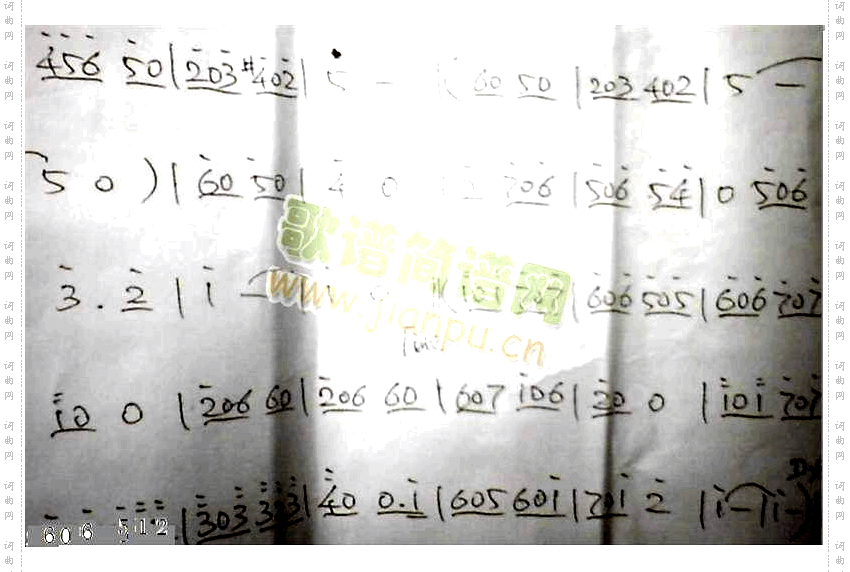 456 50 | 203 #402 | 5 - | ( 60 50 | 203 402 | 5 -
5 0 ) | 60 50 | 4 0 706 | 506 54 | 0 506
3 . 2 | 1 - 101 707 | 606 505 | 606 707
Fine
10 0 | 206 60 | 206 60 | 607 106 | 20 0 | 101 707
606 512 | 303 333 | 40 0.1 | 605 601 | 701 2 | 1 - | 1 - )
歌谱简谱网
www.jianpu.cn
词曲网